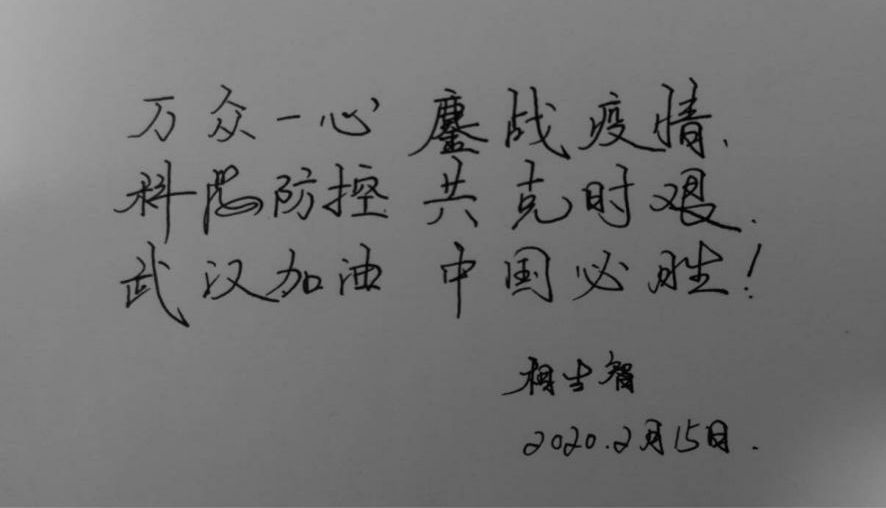 万众一心 鏖战疫情.
科学防控 共克时艰.
武汉加油 中国必胜!
相生智
2020.2月15日.